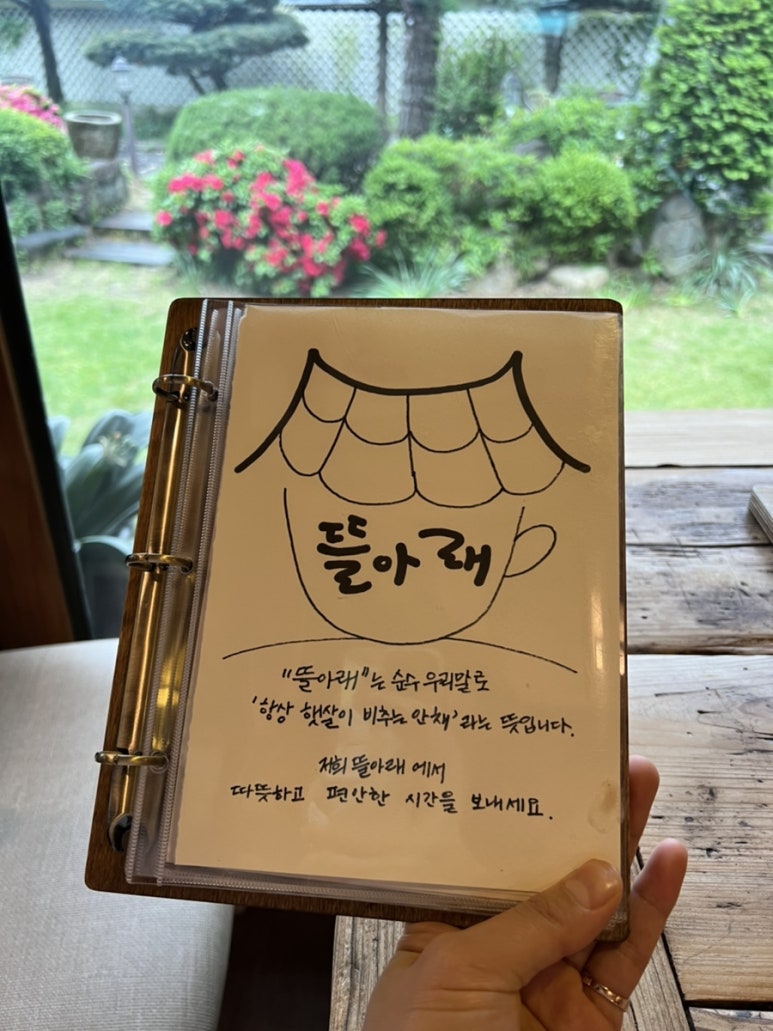 뜰아래
"뜰아래"는 순수 우리말로
'항상 햇살이 비추는 안채'라는 뜻입니다.
저희 뜰아래에서
따뜻하고 편안한 시간을 보내세요.